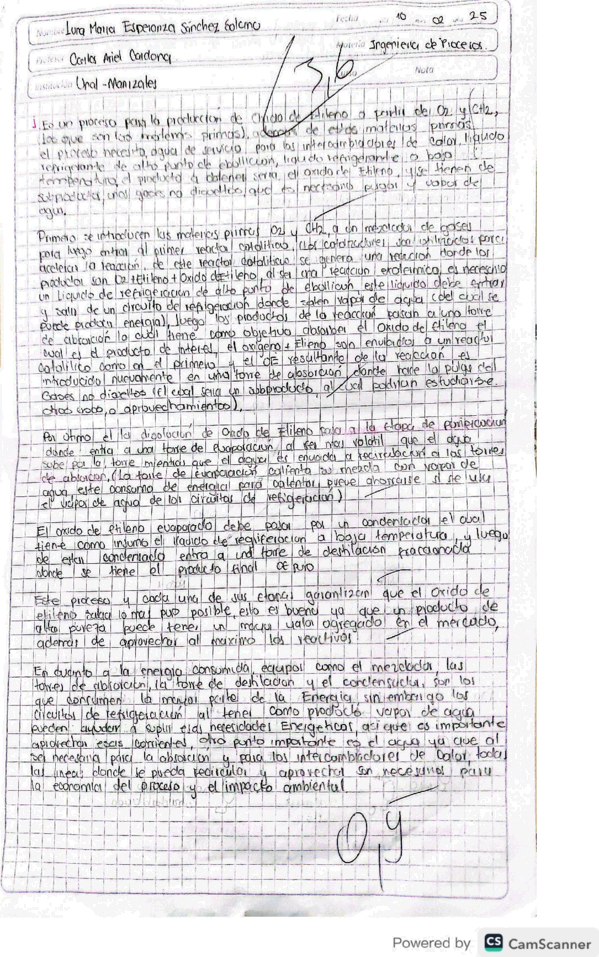 Luna Maria Esperanza Sánchez Galeano Fecha 10 02 25
Carlos Ariel Cardona Materia Ingenieria de Procesos
Unal - Manizales Nota
3,6
1. Es un proceso para la produccion de Oxido de Etileno a partir de O2 y CH2,
los que son las materias primas), de estas materias primas
el proceso necesita agua de servicio para los intercambiadores de calor, liquido
refrigerante de alto punto de ebullicion, liquido refrigerante a baja
temperatura, el producto a obtener sera el oxido de Etileno, y se tienen de
subproductos, unos gases no disueltos, que es necesario purgar y vapor de
agua.
Primero se introducen las materias primas O2 y CH2, a un mezclador de gases
para luego entrar al primer reactor catalitico, (los catalizadores son utilizados para
acelerar la reacción, de este reactor catalitico se genera una reacción donde los
productos son O2 + Etileno + Oxido de etileno, al ser una reacción exotermica, es necesario
un liquido de refrigeracion de alto punto de ebullicion, este liquido debe entrar
y salir de un circuito de refrigeracion donde salen vapor de agua (del cual se
puede producir energia), luego los productos de la reacción pasan a una torre
de absorcion lo cual tiene como objetivo absorber el Oxido de etileno el
cual es el producto de interes, el oxigeno + Etileno son enviados a un reactor
catalitico como en el primero y el OE resultante de la reacción es
introducido nuevamente en una torre de absorcion, donde hace la purga del
Gases no disueltos (el cual sera un subproducto, al cual podrian estudiarse
otros usos, o aprovechamientos).
Por ultimo el la disolución de Oxido de Etileno pasa a la etapa de purificacion
donde entra a una torre de evaporacion al ser mas volatil que el agua,
sube por la torre mientras que el agua es enviada a recirculacion a las torres
de absorcion, (la torre de evaporacion calienta su mezcla con vapor de
agua, este consumo de energia para calentar, puede ahorrarse si se usa
el vapor de agua de los circuitos de refrigeracion)
El oxido de etileno evaporado debe pasar por un condensador el cual
tiene como insumo el liquido de refrigeracion a baja temperatura, y luego
de estar condensado entra a una torre de destilacion fraccionada
donde se tiene el producto final OE puro
Este proceso y cada una de sus etapas garantizan que el oxido de
etileno salga lo mas puro posible, esto es bueno ya que un producto de
alta pureza puede tener un mayor valor agregado en el mercado,
ademas de aprovechar al maximo los reactivos.
En cuanto a la energia consumida, equipos como el mezclador, las
torres de absorcion, la torre de destilacion y el condensador, son los
que consumen la mayor parte de la Energia sin embargo los
circuitos de refrigeracion al tener como producto vapor de agua
pueden ayudar a suplir esas necesidades Energeticas, asi que es importante
aprovechar esas corrientes, otro punto importante es el agua ya que al
ser necesaria para la absorcion y para los intercambiadores de Calor, todas
las lineas donde se pueda recircular y aprovechar son necesarias para
la economia del proceso y el impacto ambiental.
0,9
Powered by CS CamScanner